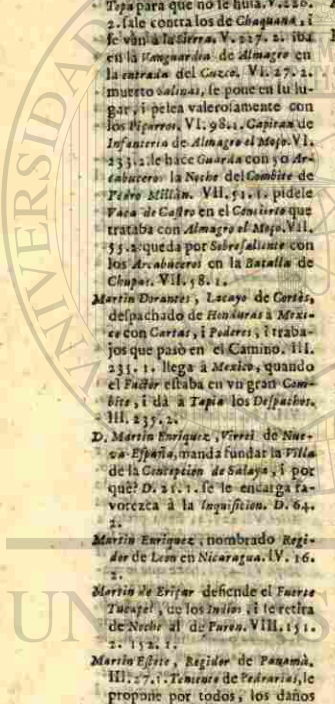 Topa para que no le huia. V. 226.
2. sale contra los de Chaquana, i
se vàn à la Sierra. V. 227. 2. iba
en la Vanguardia de Almagro en
la entrada del Cuzco. VI. 27. 2.
muerto Salinas, se pone en su lu-
gar, i pelea valerosamente con
los Piçarros. VI. 98. 1. Capitan de
Infanteria de Almagro el Moço. VI.
233. 2. le hace Guarda con 50 Ar-
cabuceros la Noche del Combite de
Pedro Millàn. VII. 51. 1. pidele
Vaca de Castro en el Concierto que
trataba con Almagro el Moço. VII.
55. 2. queda por Sobresaliente con
los Arcabuceros en la Batalla de
Chupas. VII. 58. 1.
Martin Dorantes, Lacayo de Cortès,
despachado de Honduras à Mexi-
co con Cartas, i Poderes, i traba-
jos que pasò en el Camino. III.
235. 1. llega à Mexico, quando
el Factor estaba en vn gran Com-
bite, i dà à Tapia los Despachos.
III. 235. 2.
D. Martin Enriquez, Virrei de Nue-
va España, manda fundar la Villa
de la Concepcion de Salaya, i por
què? D. 25. 1. se le encarga fa-
vorezca à la Inquisicion. D. 64.
2.
Martin Enriquez, nombrado Regi-
dor de Leon en Nicaragua. IV. 16.
2.
Martin de Erizar defiende el Fuerte
Tucapel, de los Indios, i se retira
de Noche al de Puren. VIII. 151.
2. 152. 1.
Martin Estete, Regidor de Panamà.
III. 27. 1. Teniente de Pedrarias, le
propone por todos, los daños
UNIVERSID
UN